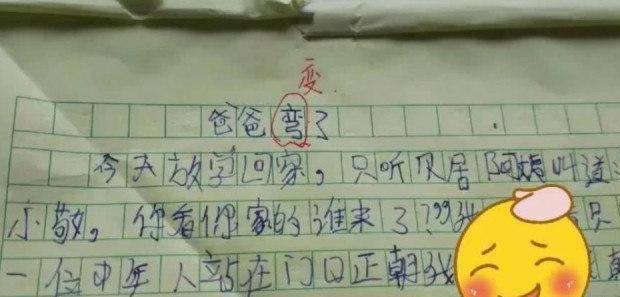 变
爸爸弯了
今天放学回家，只听见居阿姨叫道:
小敬，你看你家的谁来了??我 只
一位中年人站在门口正朝我